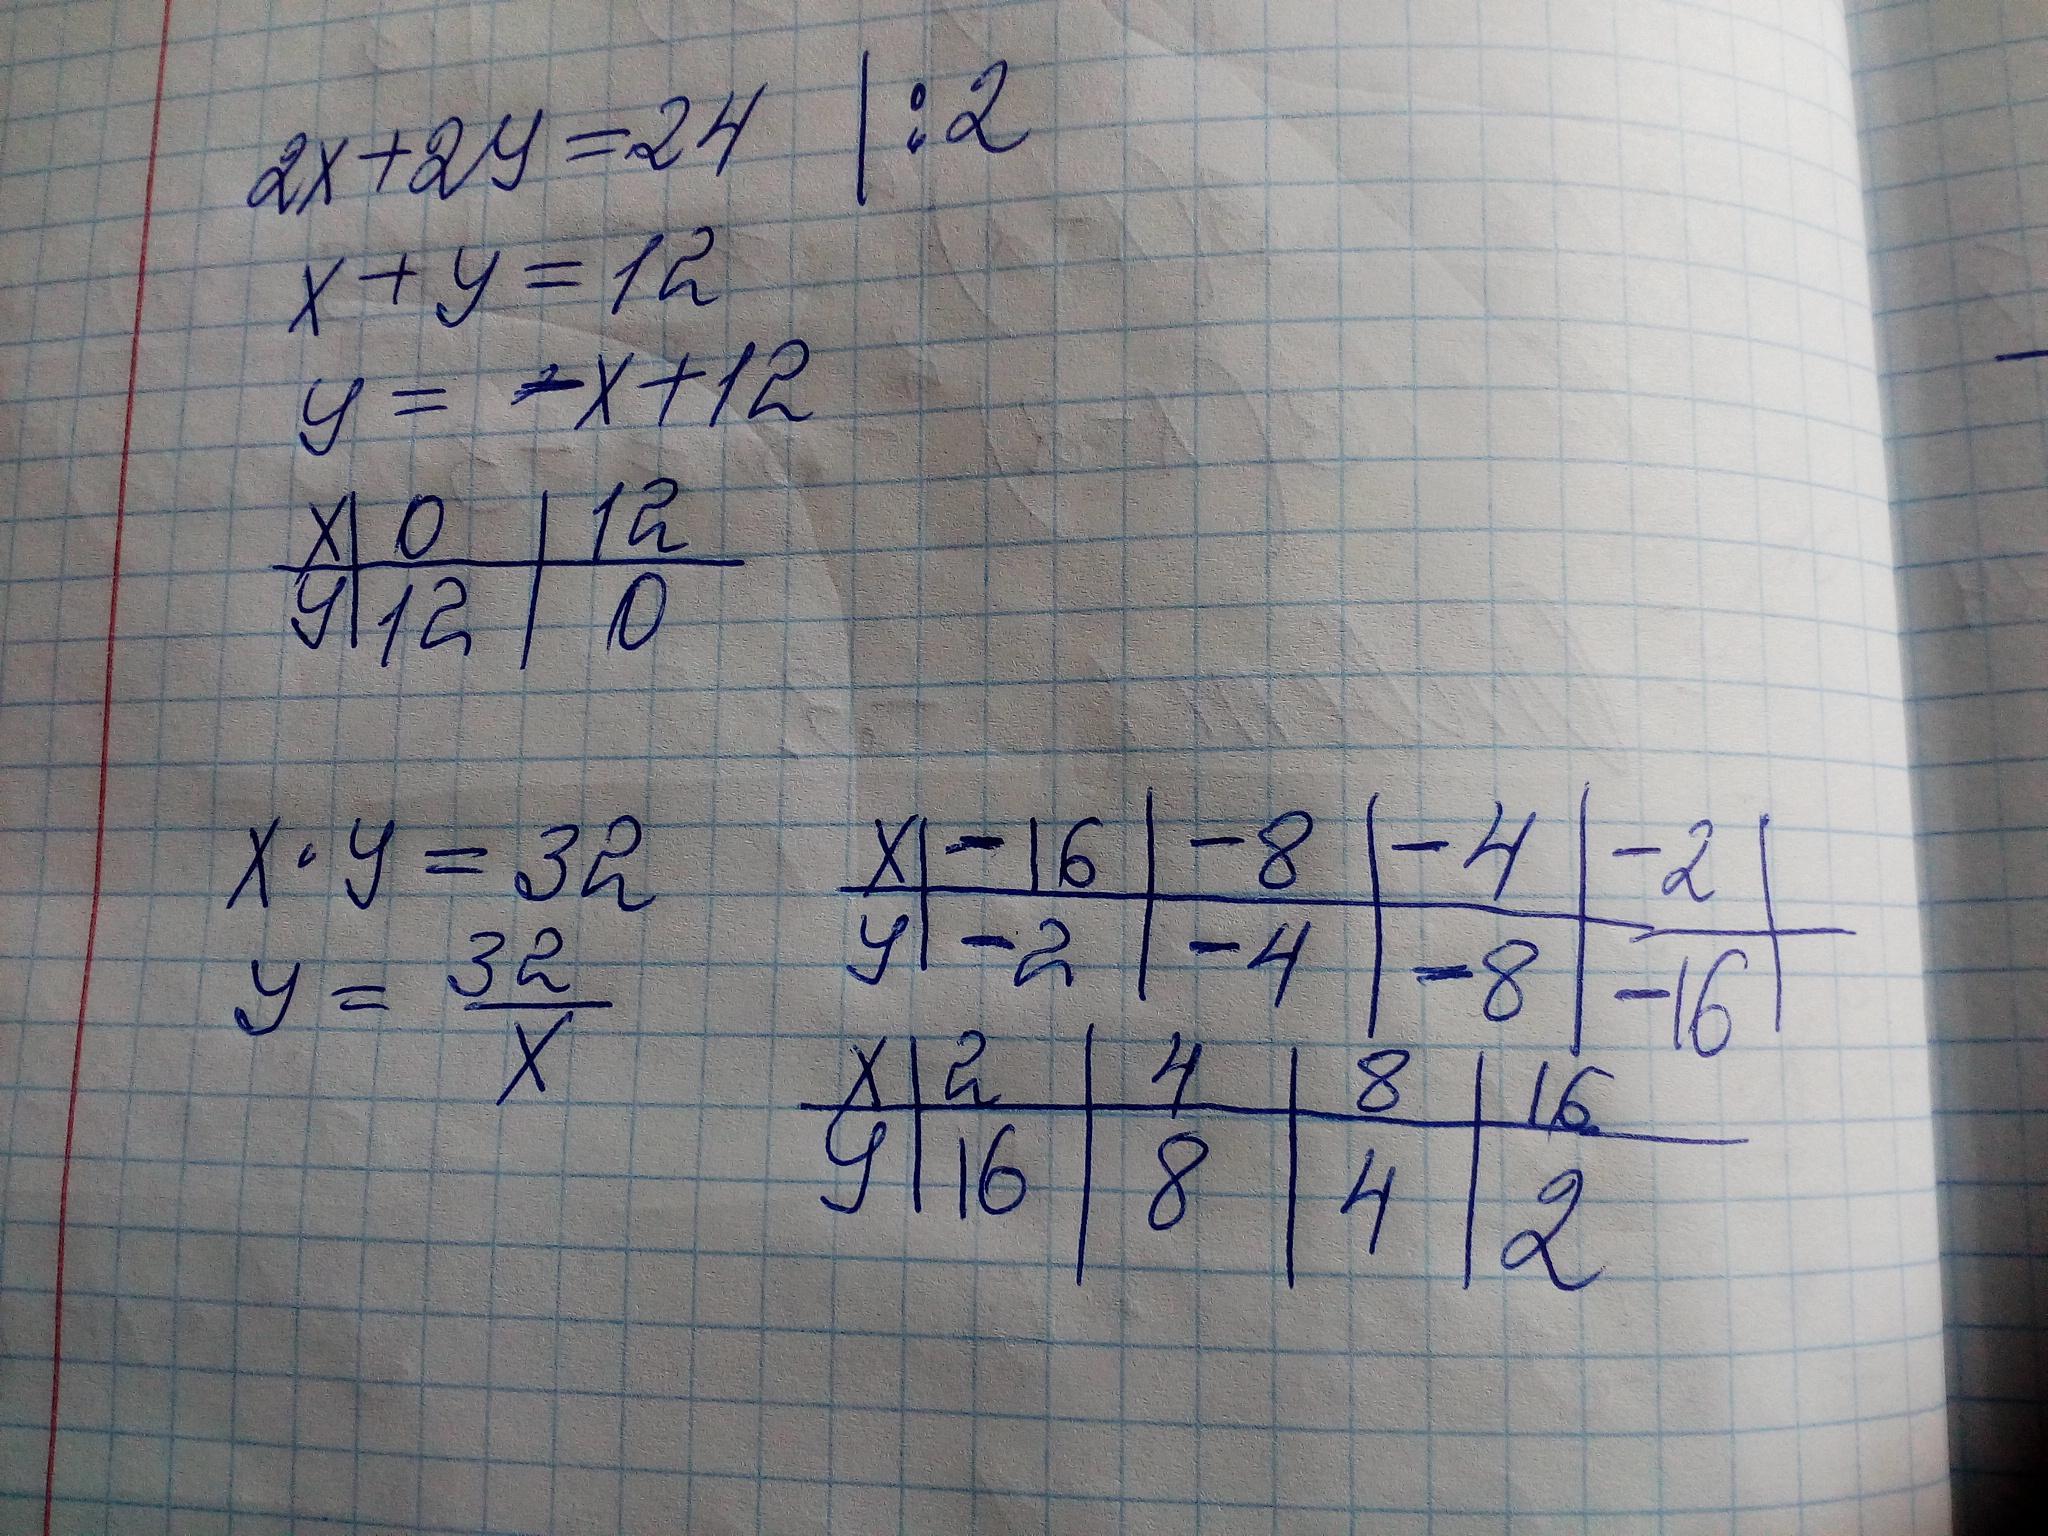 2x+2y=24 |:2
x+y=12
y= -x+12
x|0|12
y|12|0
x·y=32
y=32/x
x|-16|-8|-4|-2|
y|-2|-4|-8|-16|
x|2|4|8|16
y|16|8|4|2